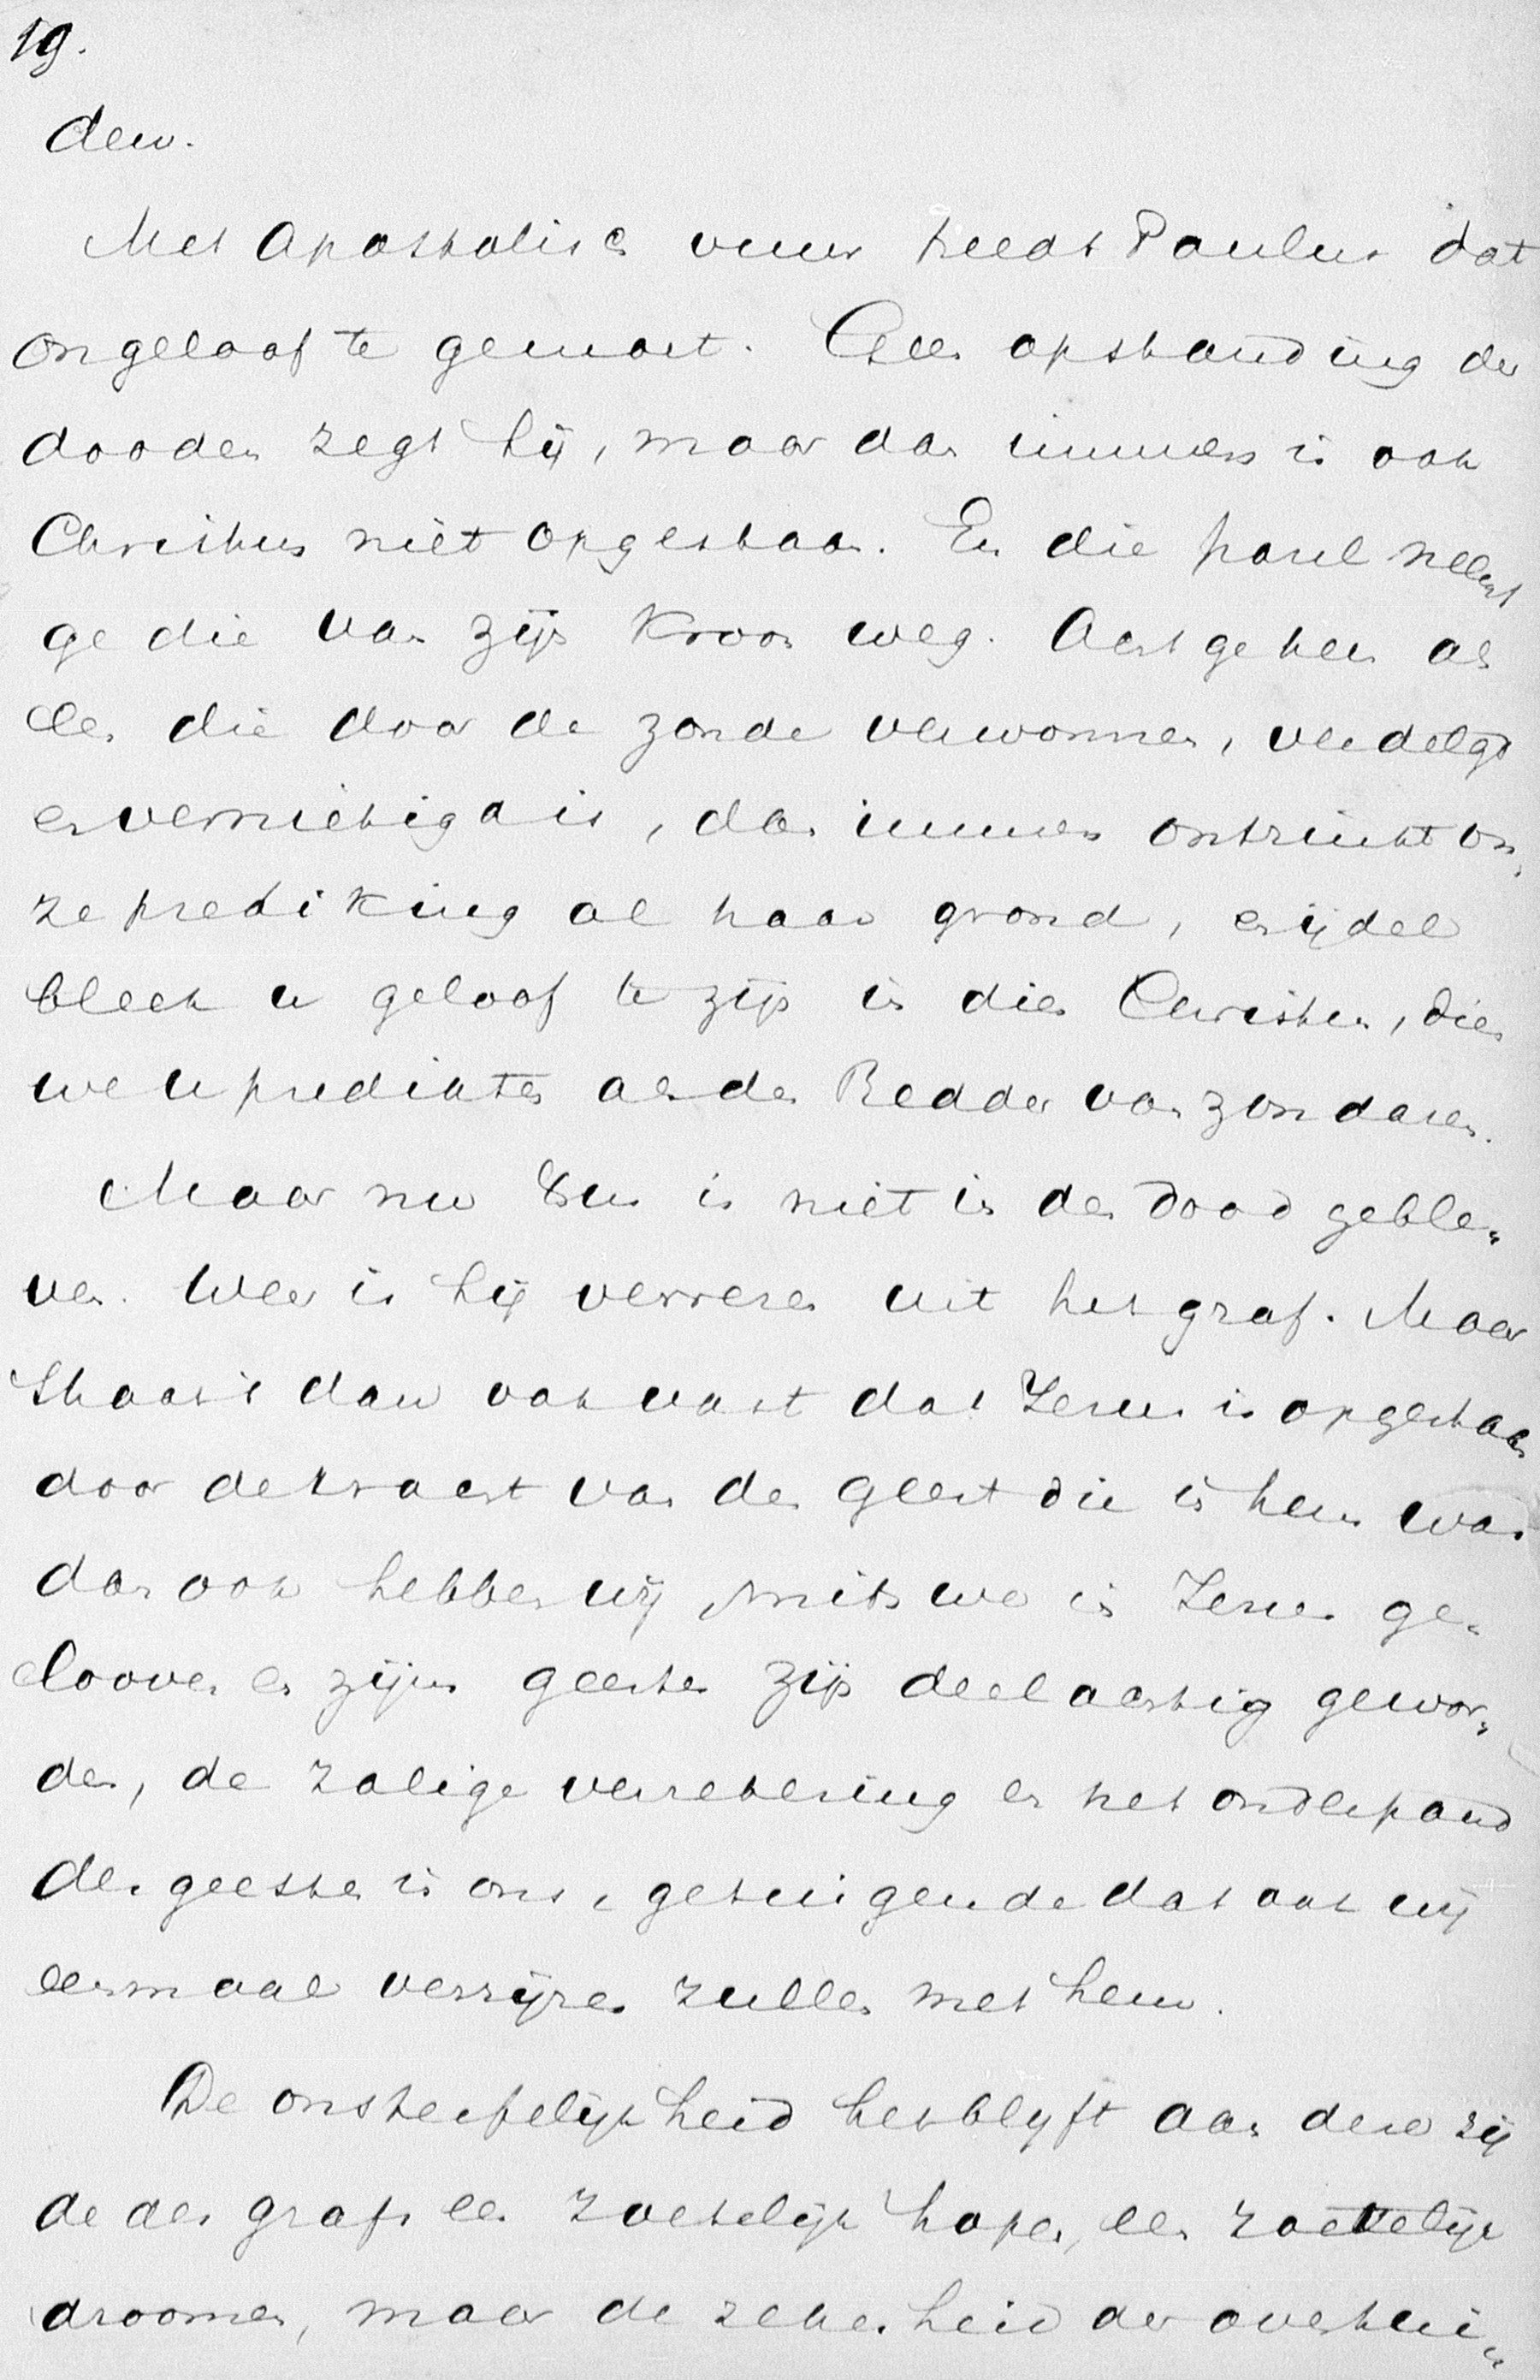 19.
den.
Met Apostolisch vuur treedt Paulus dat
ongeloof te gemoet. Geen opstanding der
dooden zegt hij, maar dan immers is ook
Christus niet opgestaan. En die parel neemt
ge die van zijn Kroon weg. Acht ge hem als
een die door de zonde verwonnen, verdelgd
en vernietigd is, dan immers ontzinkt on„
ze prediking al haar grond, en ijdel
bleek u geloof te zijn in dien Christus, dien
we u predikten als den Redder van zondaren.
Maar nu Een is niet in den dood geble„
ven. Wel is hij verrezen uit het graf. Maar
staat 't dan ook vast dat Jezus is opgestaan
door de kracht van den geest die in hem was
dan ook hebben wij mits we in Jezus ge„
looven en zijns geestes zijn deelachtig gewor„
den, de zalige verzekering en het onderpand
des geestes in ons, getuigende dat ook wij
eenmaal verrijzen zullen met hem.
De onsterfelijkheid het blijft aan deze zij
de des grafs een zoetelijk hopen, een zoetelijk
droomen, maar de zekerheid der overtui„